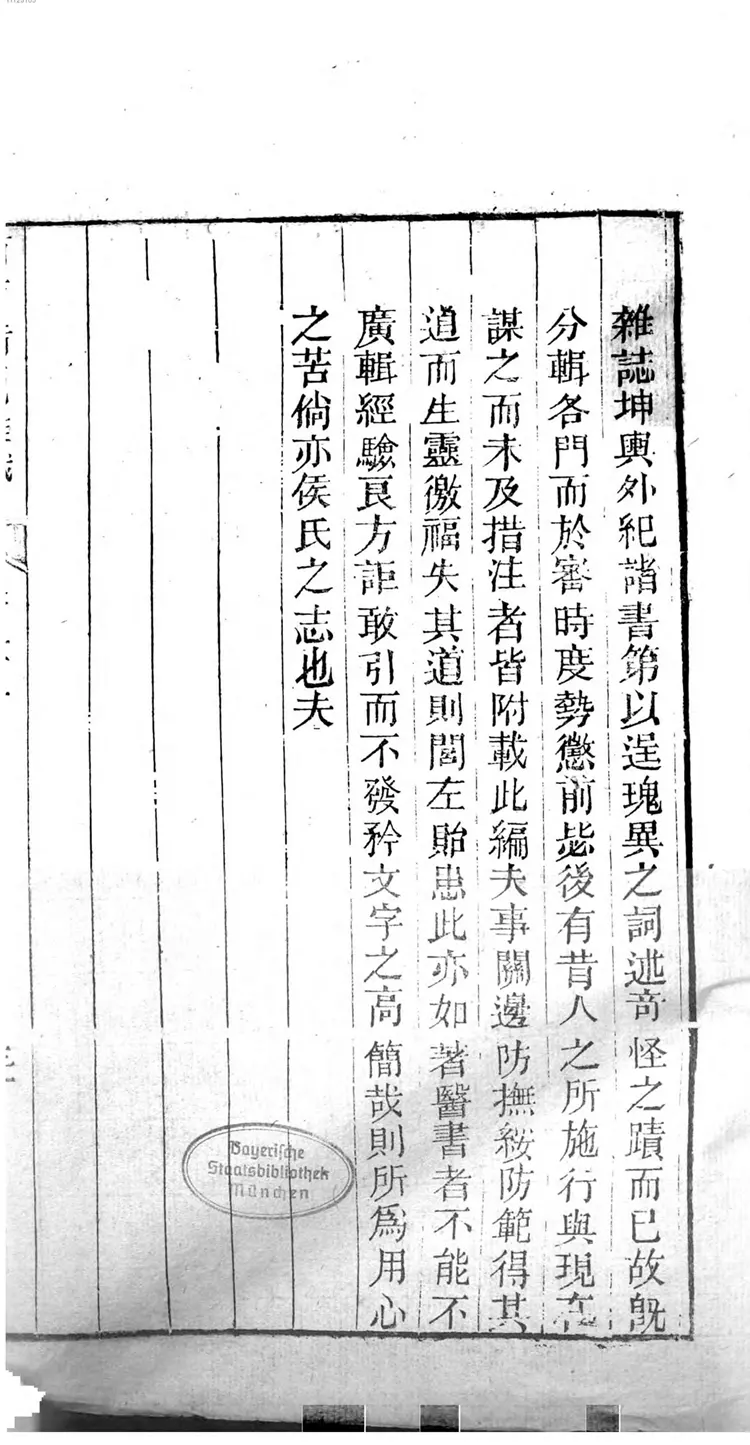 雜誌坤輿外紀諸書第以逞瑰異之詞述奇怪之蹟而已故旣
分輯各門而於審時度勢懲前毖後有昔人之所施行與現在
謀之而未及措注者皆附載此編夫事關邊防撫綏防範得其
道而生靈徼福失其道則閭左貽患此亦如著醫書者不能不
廣輯經驗良方詎敢引而不發矜文字之高簡哉則所爲用心
之苦倘亦侯氏之志也夫
Bayerische
Staatsbibliothek
München